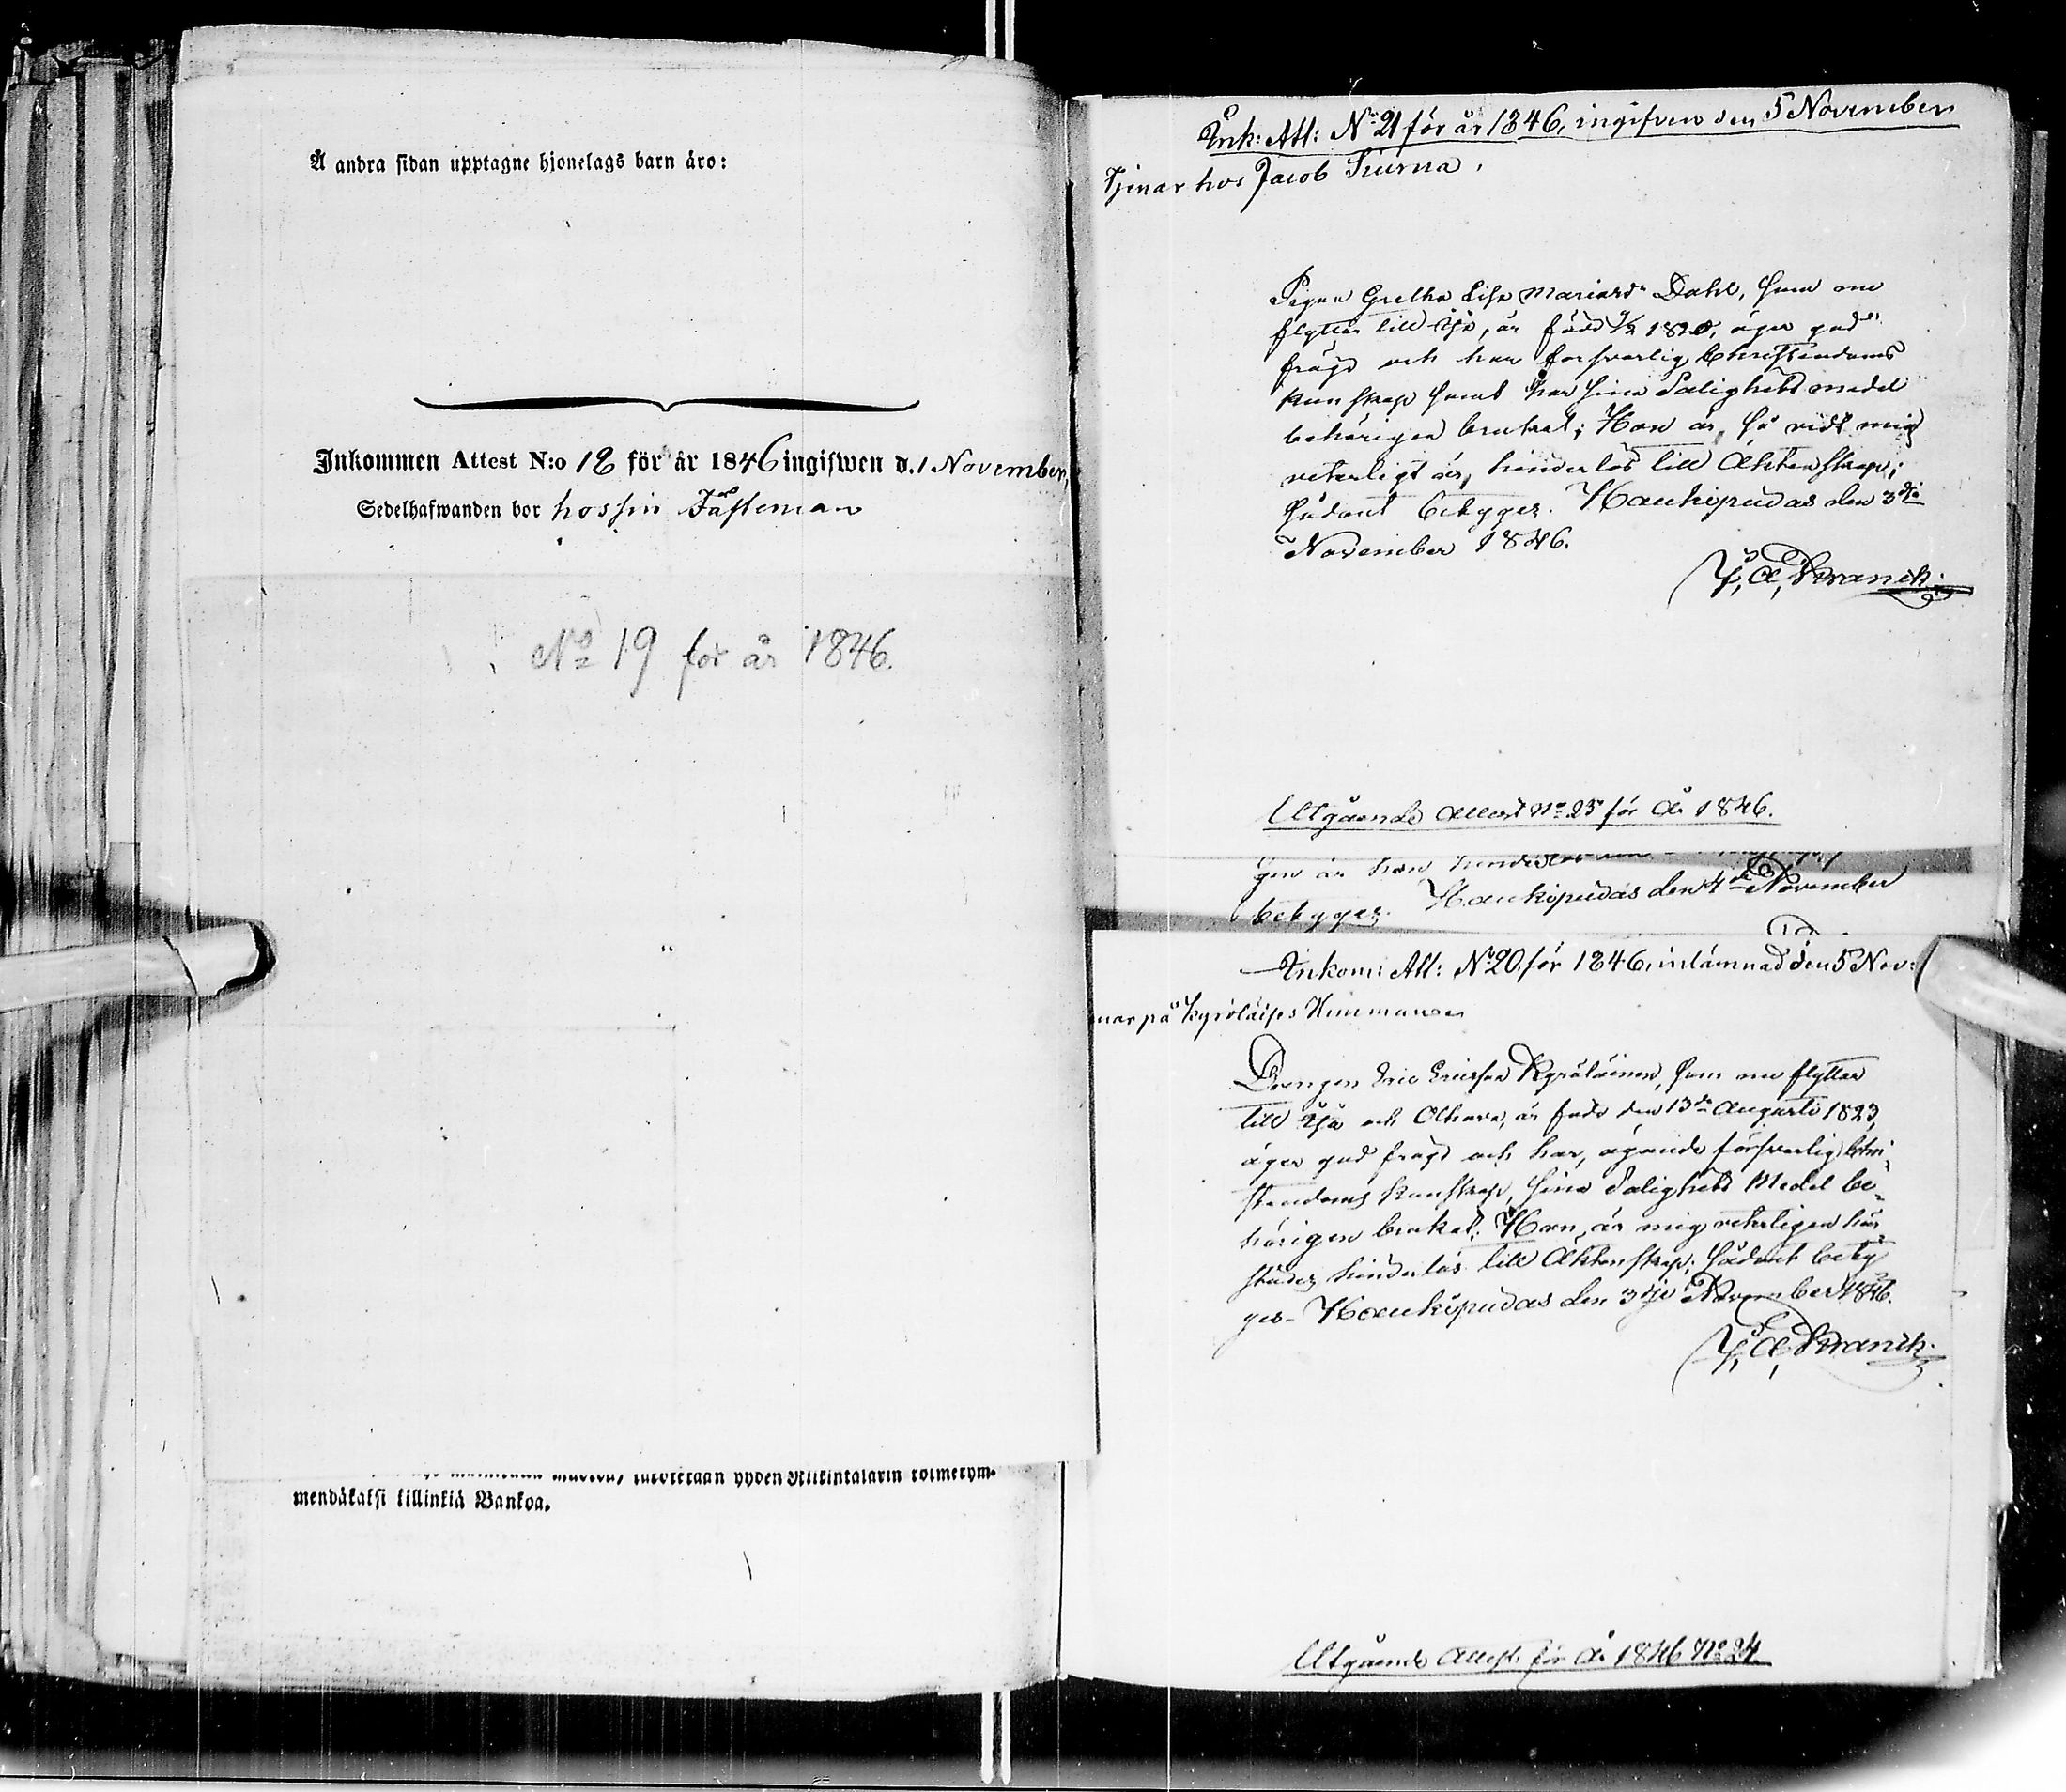 Å andra sidan upptagne hjonelags barn äro:
Inkommen Attest N:o 18 för år 1846 ingifwen d. 1 November,
Sedelhafwanden bor hos sin Fästeman
No 19 för år 1846.
yhden Riikintalarin kolmekym-
mendäkaksi killinkiä Bankoa.
Ink: Att: No 21 för år 1846, ingifven den 5 November
Tjenar hos Jacob Kiurua.
Pigan Gretha Lisa Mariasdr Dahl, som nu
flyttar till Ijo, är född 1820, äger god
frägd och har försvarlig Christendoms
kunskap samt har sina Salighets medel
behörigen brukat; Hon är, så vidt mig
veterligt är, hinderlös till Äktenskap;
sådant betygges. Haukipudas den 3dje
November 1846.
J, A, Kranck.
Utgående Attest No 25 för År 1846.
gen är han
betygges. Haukipudas den 4de November
Inkom: Att: No 20 för 1846, inlämnad den 5 Nov:
nar på Kyröläises Hemman
Drengen Eric Ericsson Kyröläinen, som nu flyttar
till Ijo och Olhava, är född den 13de Augusti 1823,
äger god frägd och har, ägande försvarlig Chri-
stendoms kunskap, sina Salighets Medel be-
hörigen brukat. Han är mig veterligen här
städes hinderlös till Äktenskap; sådant betyg
ges. Haukipudas den 3dje November 1846.
J, A, Kranck.
Utgående Attest för År 1846 No 24